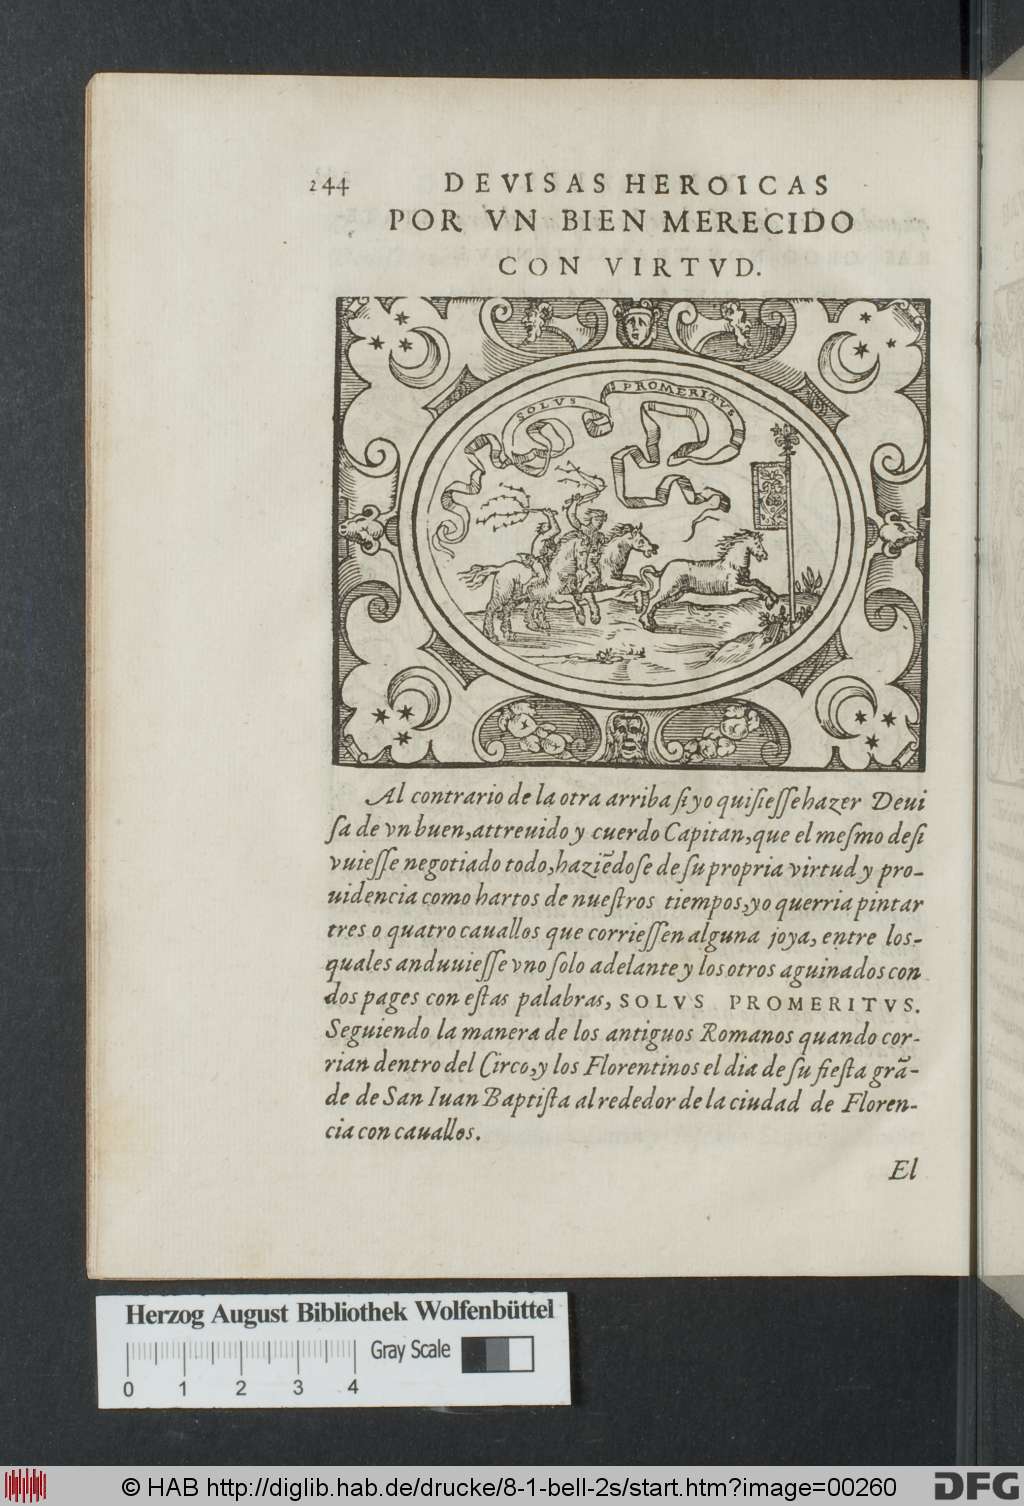 244 DEVISAS HEROICAS
POR VN BIEN MERECIDO
CON VIRTVD.
SOLVS PROMERITVS
Al contrario de la otra arriba ſi yo quiſieſſe hazer Deui
ſa de vn buen, attreuido y cuerdo Capitan, que el meſmo de ſi
vuieſſe negotiado todo, haziẽdoſe de ſu propria virtud y pro-
uidencia como hartos de nueſtros tiempos, yo querria pintar
tres o quatro cauallos que corrieſſen alguna joya, entre los-
quales anduuieſſe vno ſolo adelante y los otros aguinados con
dos pages con eſtas palabras, SOLVS PROMERITVS.
Seguiendo la manera de los antiguos Romanos quando cor-
rian dentro del Circo, y los Florentinos el dia de ſu fieſta grã-
de de San Iuan Baptiſta al rededor de la ciudad de Floren-
cia con cauallos.
El
Herzog August Bibliothek Wolfenbüttel
Gray Scale
0 1 2 3 4
© HAB http://diglib.hab.de/drucke/8-1-bell-2s/start.htm?image=00260
DFG